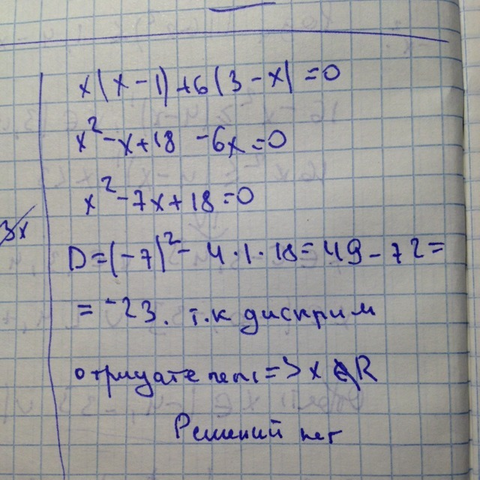 x(x-1)+6(3-x)=0
x²-x+18 -6x=0
x²-7x+18=0
3x
D=(-7)²-4·1·18=49-72=
=-23. т.к дискрим
отрицателен=>x∉R
Решений нет